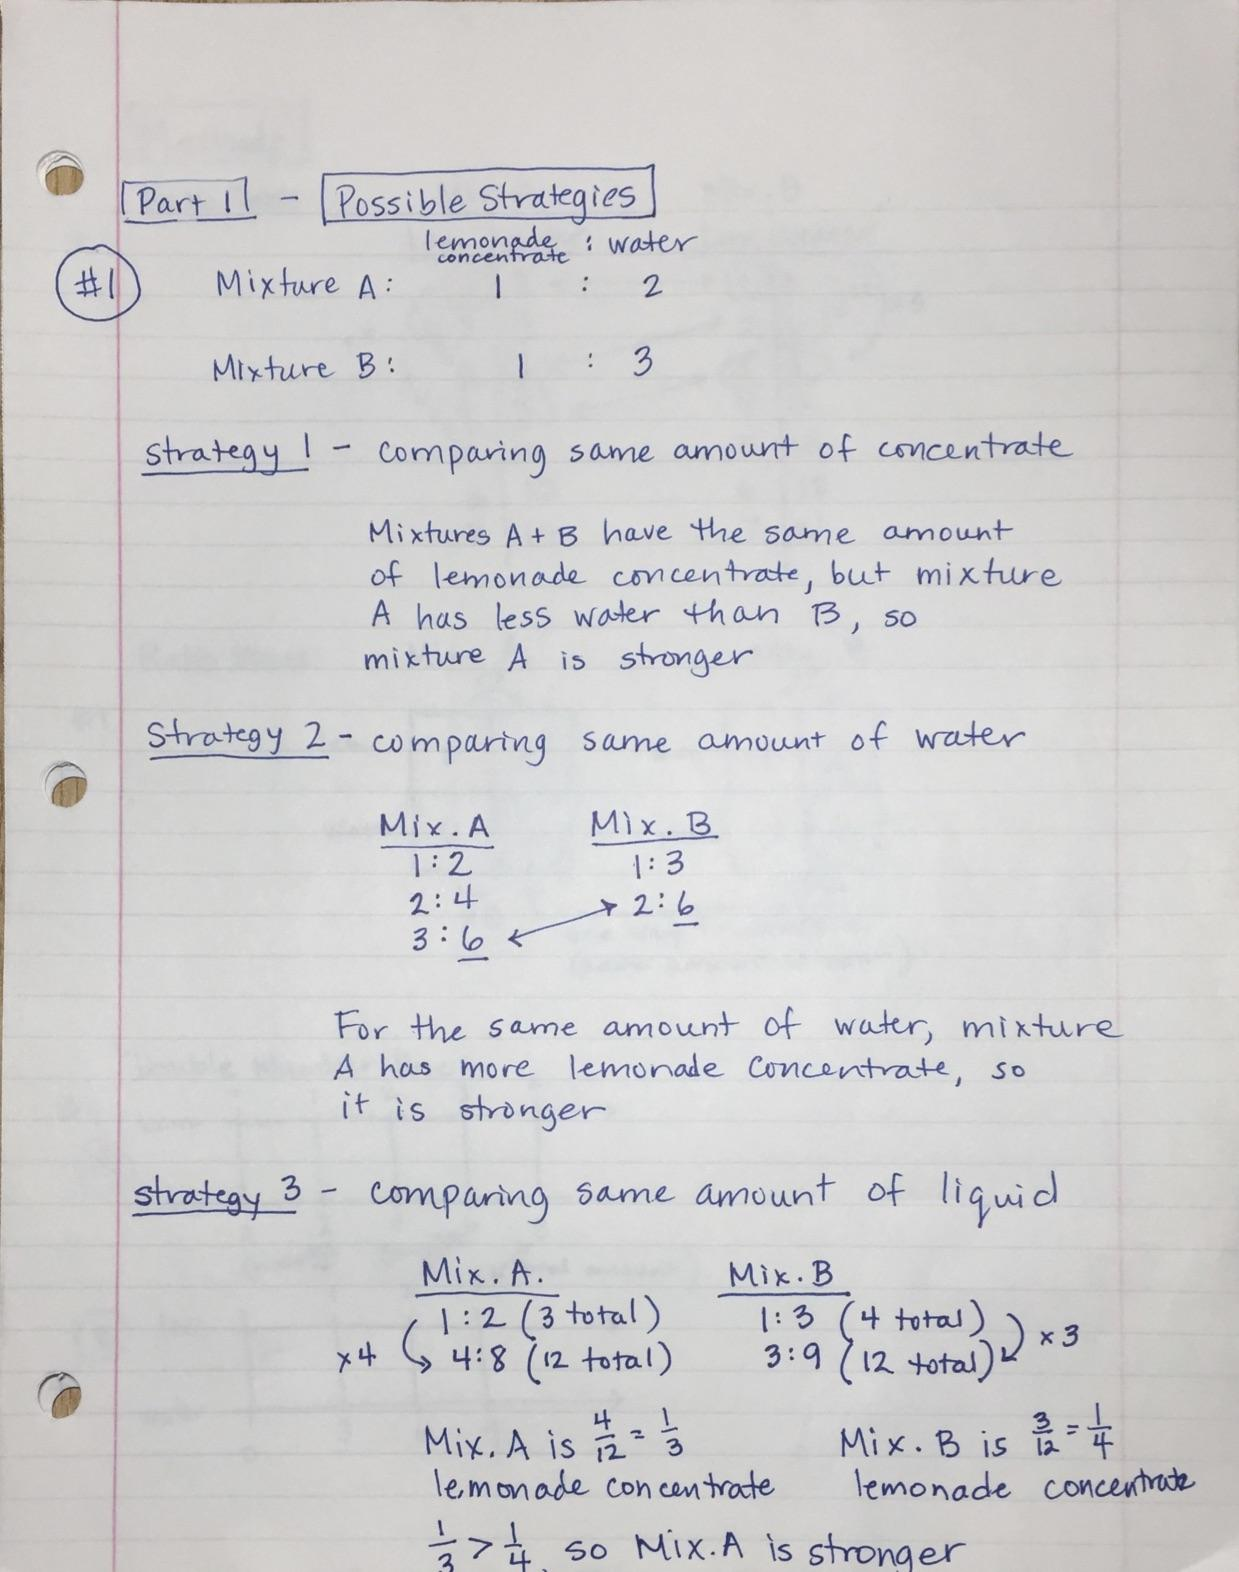 Part 1 - Possible Strategies
lemonade concentrate : water
#1 Mixture A: 1 : 2
Mixture B: 1 : 3
Strategy 1 - comparing same amount of concentrate
Mixtures A + B have the same amount
of lemonade concentrate, but mixture
A has less water than B, so
mixture A is stronger
Strategy 2 - comparing same amount of water
Mix. A Mix. B
1:2 1:3
2:4 2:6
3:6
For the same amount of water, mixture
A has more lemonade concentrate, so
it is stronger
Strategy 3 - comparing same amount of liquid
Mix. A. Mix. B
1:2 (3 total) 1:3 (4 total)
x4 4:8 (12 total) 3:9 (12 total) x3
Mix. A is 4/12 = 1/3 Mix. B is 3/12 = 1/4
lemonade concentrate lemonade concentrate
1/3 > 1/4, so Mix. A is stronger